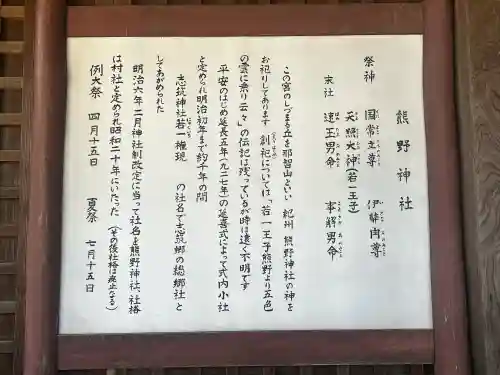 熊野神社
祭神 国常立尊 伊弉冉尊
天照大神(若一王子)
末社 速玉男命 事解男命
この宮のしづまる丘を那智山といい 紀州 熊野神社の神を
お祀りしてあります 創祀については「若一王子熊野より五色
の雲に乗り云々」の伝記は残っているが時は遠く不明です
平安のはじめ延長五年(九二七年)の延喜式によって式内小社
と定められ明治初年まで約千年の間
志坑神社若一権現 の社名で志筑郷の総郷社と
してあがめられた
明治六年二月神社制改定に当って社名を熊野神社、社格
は村社と定められ昭和二十年にいたった(その後社格は廃止なる)
例大祭 四月十五日 夏祭 七月十五日